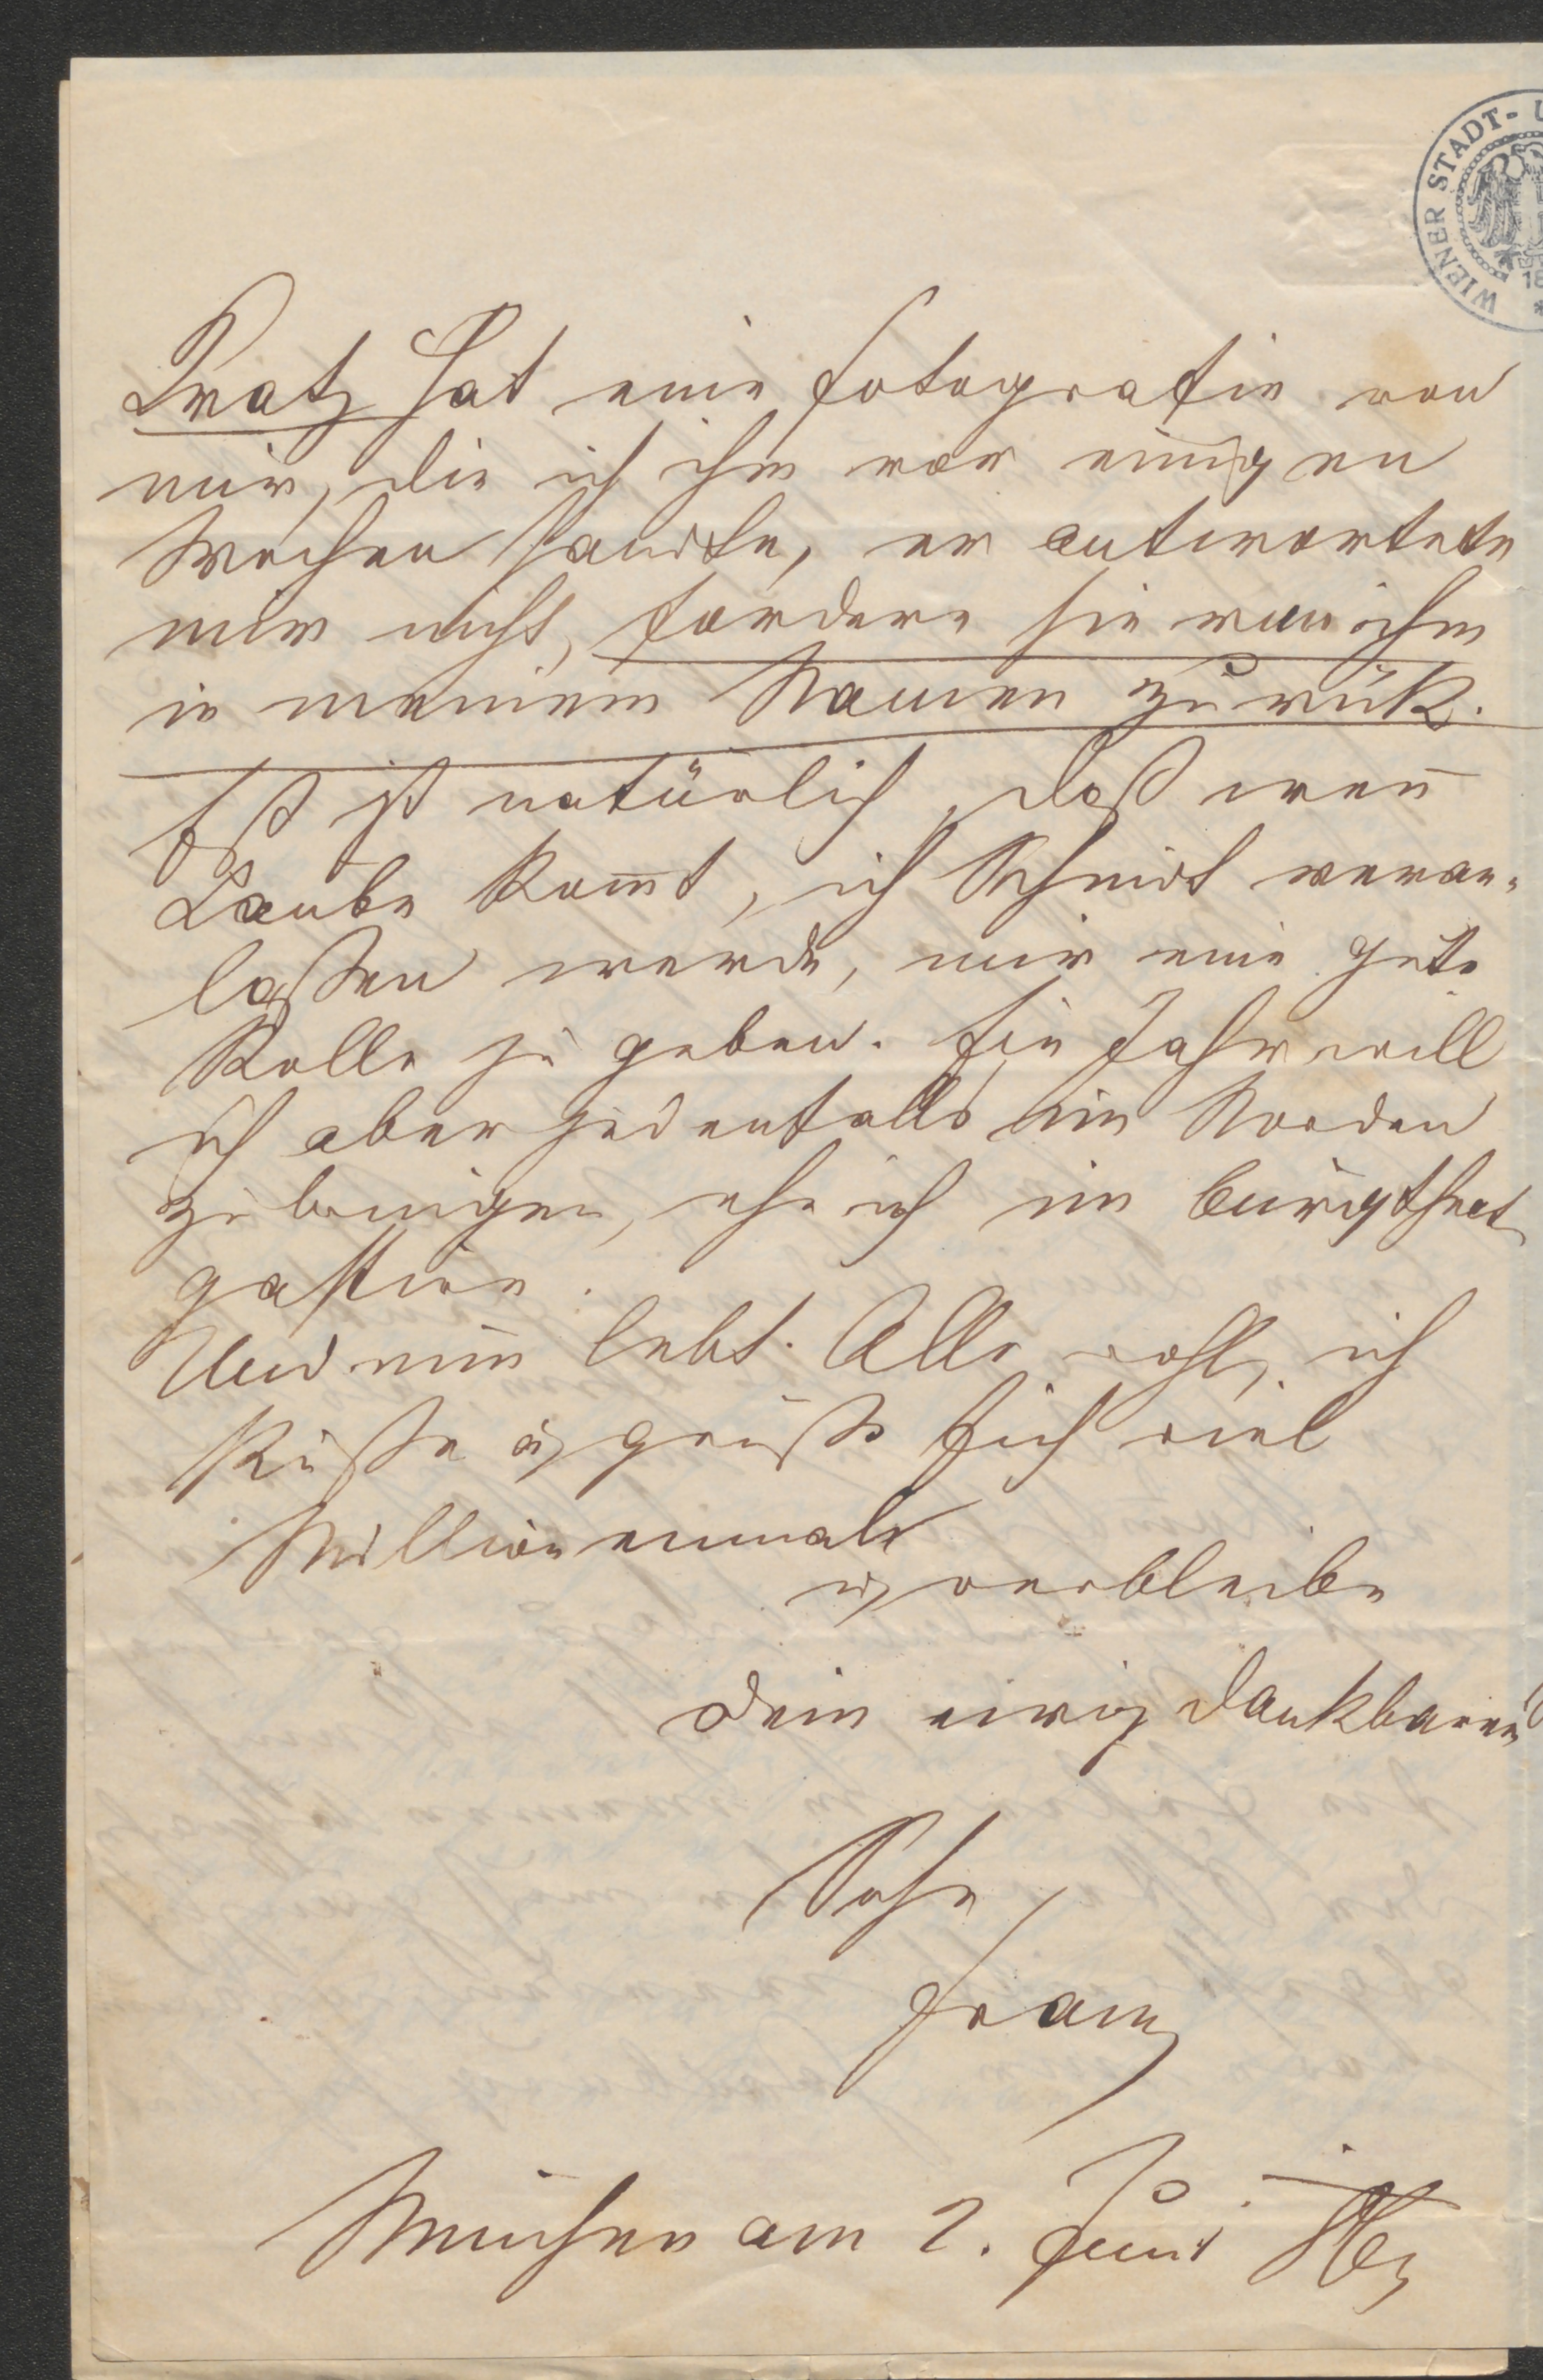 WIENER STADT- U
18
Kratz hat eine Fotografie von
mir, die ich ihm vor einigen
Wochen sandte, er antwortete
mir nicht, fordere sie von ihm
in meinem Namen zurück.
Es ist natürlich, daß wen̅
Laube kom̅t, ich Schmidt veran-
lassen werde, mir eine gute
Rolle zu geben. Ein Jahr will
ich aber jedenfalls im Norden
zubringen, ehe ich im Burgtheat
gastire.
Und nun lebt Alle wohl, ich
küsse u grüße Euch viel
Millionenmale
u verbleibe
Dein ewig dankbarer
Sohn
Franz
München am 2. Juni